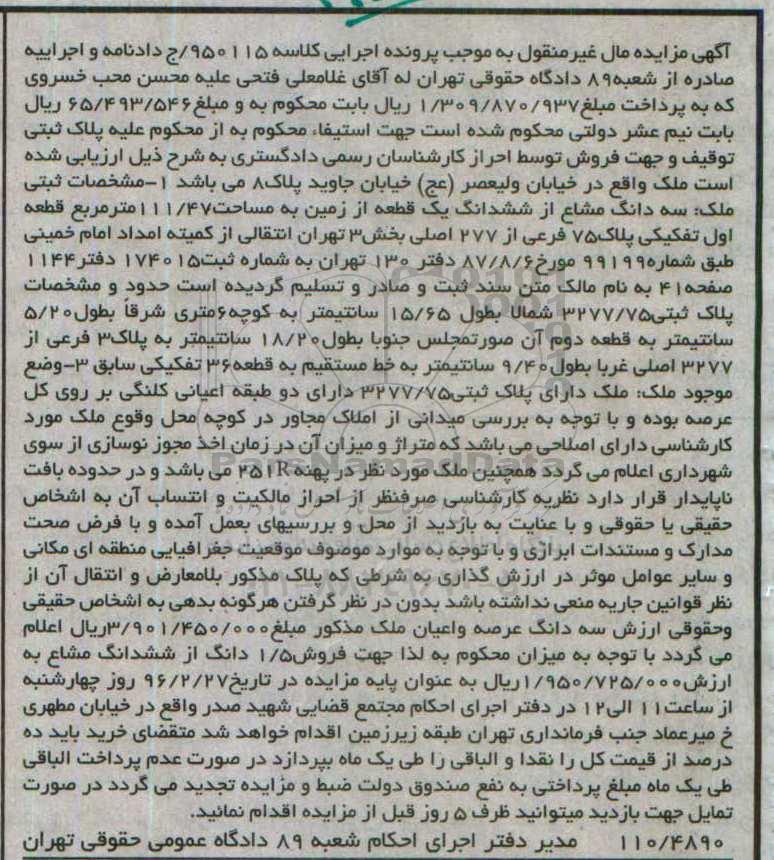 آگهی مزایده مال غیرمنقول به موجب پرونده اجرایی کلاسه ۹۵۰۱۱۵/ج دادنامه و اجراییه
صادره از شعبه۸۹ دادگاه حقوقی تهران له آقای غلامعلی فتحی علیه محسن محب خسروی
که به پرداخت مبلغ۱/۳۰۹/۸۷۰/۹۳۷ ریال بابت محکوم به و مبلغ۶۵/۴۹۳/۵۴۶ ریال
بابت نیم عشر دولتی محکوم شده است جهت استیفاء محکوم به از محکوم علیه پلاک ثبتی
توقیف و جهت فروش توسط احراز کارشناسان رسمی دادگستری به شرح ذیل ارزیابی شده
است ملک واقع در خیابان ولیعصر (عج) خیابان جاوید پلاک۸ می باشد ۱-مشخصات ثبتی
ملک: سه دانگ مشاع از ششدانگ یک قطعه از زمین به مساحت۱۱۱/۴۷مترمربع قطعه
اول تفکیکی پلاک۷۵ فرعی از ۲۷۷ اصلی بخش۳ تهران انتقالی از کمیته امداد امام خمینی
طبق شماره۹۹۱۹۹ مورخ۸۷/۸/۶ دفتر ۱۳۰ تهران به شماره ثبت۱۷۴۰۱۵ دفتر۱۱۴۴
صفحه۴۱ به نام مالک متن سند ثبت و صادر و تسلیم گردیده است حدود و مشخصات
پلاک ثبتی۳۲۷۷/۷۵ شمالا بطول ۱۵/۶۵ سانتیمتر به کوچه۶متری شرقاً بطول۵/۲۰
سانتیمتر به قطعه دوم آن صورتمجلس جنوبا بطول۱۸/۲۰ سانتیمتر به پلاک۳ فرعی از
۳۲۷۷ اصلی غربا بطول۹/۴۰ سانتیمتر به خط مستقیم به قطعه۳۶ تفکیکی سابق ۳-وضع
موجود ملک: ملک دارای پلاک ثبتی۳۲۷۷/۷۵ دارای دو طبقه اعیانی کلنگی بر روی کل
عرصه بوده و با توجه به بررسی میدانی از املاک مجاور در کوچه محل وقوع ملک مورد
کارشناسی دارای اصلاحی می باشد که متراژ و میزان آن در زمان اخذ مجوز نوسازی از سوی
شهرداری اعلام می گردد همچنین ملک مورد نظر در پهنه ۲۵۱R می باشد و در حدوده بافت
ناپایدار قرار دارد نظریه کارشناسی صرفنظر از احراز مالکیت و انتساب آن به اشخاص
حقیقی یا حقوقی و با عنایت به بازدید از محل و بررسیهای بعمل آمده و با فرض صحت
مدارک و مستندات ابرازی و با توجه به موارد موصوف موقعیت جغرافیایی منطقه ای مکانی
و سایر عوامل موثر در ارزش گذاری به شرطی که پلاک مذکور بلامعارض و انتقال آن از
نظر قوانین جاریه منعی نداشته باشد بدون در نظر گرفتن هرگونه بدهی به اشخاص حقیقی
وحقوقی ارزش سه دانگ عرصه واعیان ملک مذکور مبلغ۳/۹۰۱/۴۵۰/۰۰۰ریال اعلام
می گردد با توجه به میزان محکوم به لذا جهت فروش۱/۵ دانگ از ششدانگ مشاع به
ارزش۱/۹۵۰/۷۲۵/۰۰۰ریال به عنوان پایه مزایده در تاریخ۹۶/۲/۲۷ روز چهارشنبه
از ساعت۱۱ الی۱۲ در دفتر اجرای احکام مجتمع قضایی شهید صدر واقع در خیابان مطهری
خ میرعماد جنب فرمانداری تهران طبقه زیرزمین اقدام خواهد شد متقضای خرید باید ده
درصد از قیمت کل را نقدا و الباقی را طی یک ماه بپردازد در صورت عدم پرداخت الباقی
طی یک ماه مبلغ پرداختی به نفع صندوق دولت ضبط و مزایده تجدید می گردد در صورت
تمایل جهت بازدید میتوانید ظرف ۵ روز قبل از مزایده اقدام نمائید.
۱۱۰/۴۸۹۰ مدیر دفتر اجرای احکام شعبه ۸۹ دادگاه عمومی حقوقی تهران